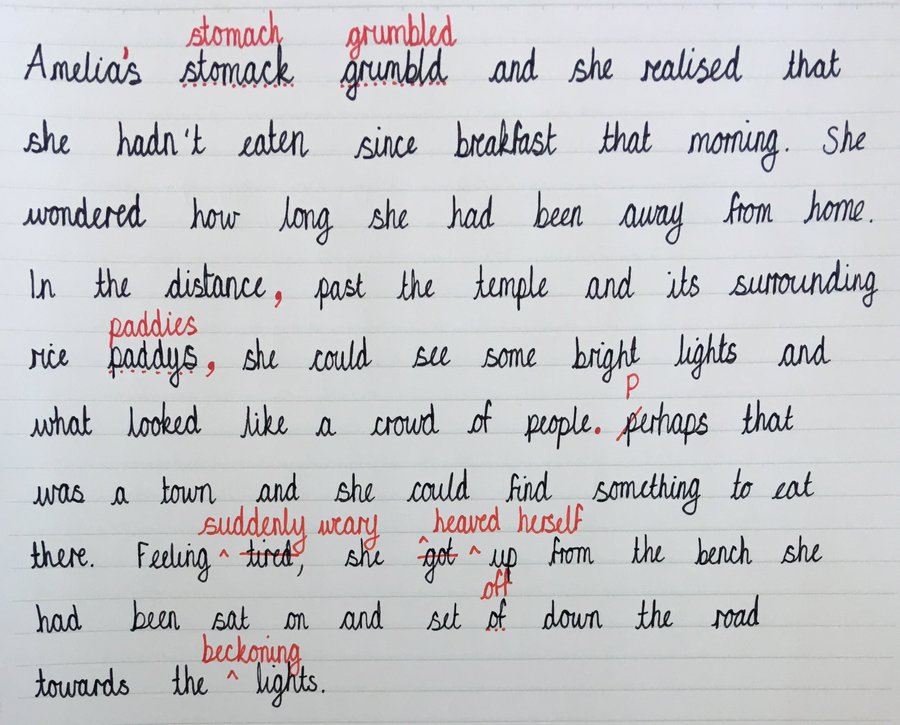 stomach grumbled
Amelia's stomack grumbld and she realised that
she hadn't eaten since breakfast that morning. She
wondered how long she had been away from home.
In the distance, past the temple and its surrounding
paddies
rice paddys, she could see some bright lights and
P
what looked like a crowd of people. perhaps that
was a town and she could find something to eat
suddenly weary heaved herself
there. Feeling ^ tired, she ^ got ^ up from the bench she
off
had been sat on and set of down the road
beckoning
towards the ^ lights.